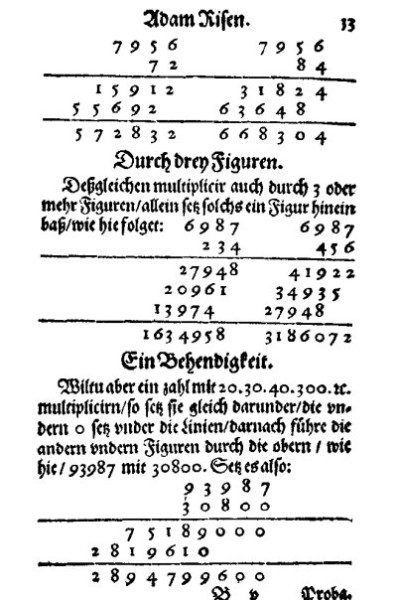 Adam Risen. 13
7956 7956
72 84
15912 31824
55692 63648
572832 668304
Durch drey Figuren.
Deßgleichen multiplicir auch durch 3 oder
mehr Figuren/allein setz solchs ein Figur hinein
baß/wie hie folget: 6987 6987
234 456
27948 41922
20961 34935
13974 27948
1634958 3186072
Ein Behendigkeit.
Wiltu aber ein zahl mit 20.30.40.300.ꝛc.
multiplicirn/so setz sie gleich darunder/die vn-
dern 0 setz vnder die Linien/darnach führe die
andern vndern Figuren durch die obern / wie
hie/ 93987 mit 30800. Setz es also:
93987
30800
75189000
2819610
2894799600
B v Proba.